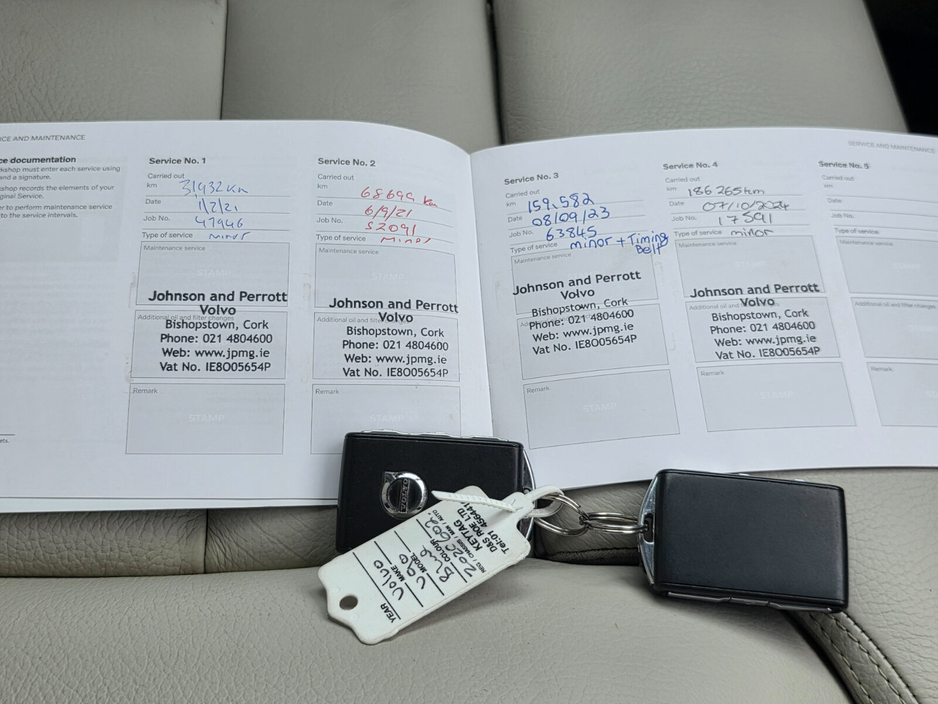 ICE AND MAINTENANCE
SERVICE AND MAINTENANCE
ce documentation
kshop must enter each service using
and a signature.
shop records the elements of your
iginal Service.
er to perform maintenance service
to the service intervals.
ets.
Service No. 1
Carried out
km 31932 km
Date 1/2/21
Job No. 47946
Type of service minor
Maintenance service
STAMP
Johnson and Perrott
Volvo
Additional oil and filter changes
Bishopstown, Cork
Phone: 021 4804600
Web: www.jpmg.ie
Vat No. IE8O05654P
Remark
STAMP
Service No. 2
Carried out
km 68699 km
Date 6/9/21
Job No. 52091
Type of service minor
Maintenance service
Johnson and Perrott
Volvo
Bishopstown, Cork
Phone: 021 4804600
Web: www.jpmg.ie
Vat No. IE8O05654P
Remark
STAMP
Service No. 3
Carried out
km 159,582
Date 08/09/23
Job No. 63845
Type of service minor + Timing
Belt
Maintenance service
Johnson and Perrott
Volvo
Bishopstown, Cork
Phone: 021 4804600
Web: www.jpmg.ie
Vat No. IE8O05654P
Remark
STAMP
Service No. 4
Carried out
km 186265km
Date 07/10/2024
Job No. 17591
Type of service minor
Maintenance service
Johnson and Perrott
Volvo
Bishopstown, Cork
Phone: 021 4804600
Web: www.jpmg.ie
Vat No. IE8O05654P
Remark
STAMP
Service No. 5
Carried out
km
Date
Job No.
Type of service
Maintenance service
Additional oil and filter changes
Remark
VOLVO
D&S ROE LTD
KEYTAG
REG / CHASSIS / MAN / AUTO
COLOUR
MODEL
MAKE Volvo
YEAR